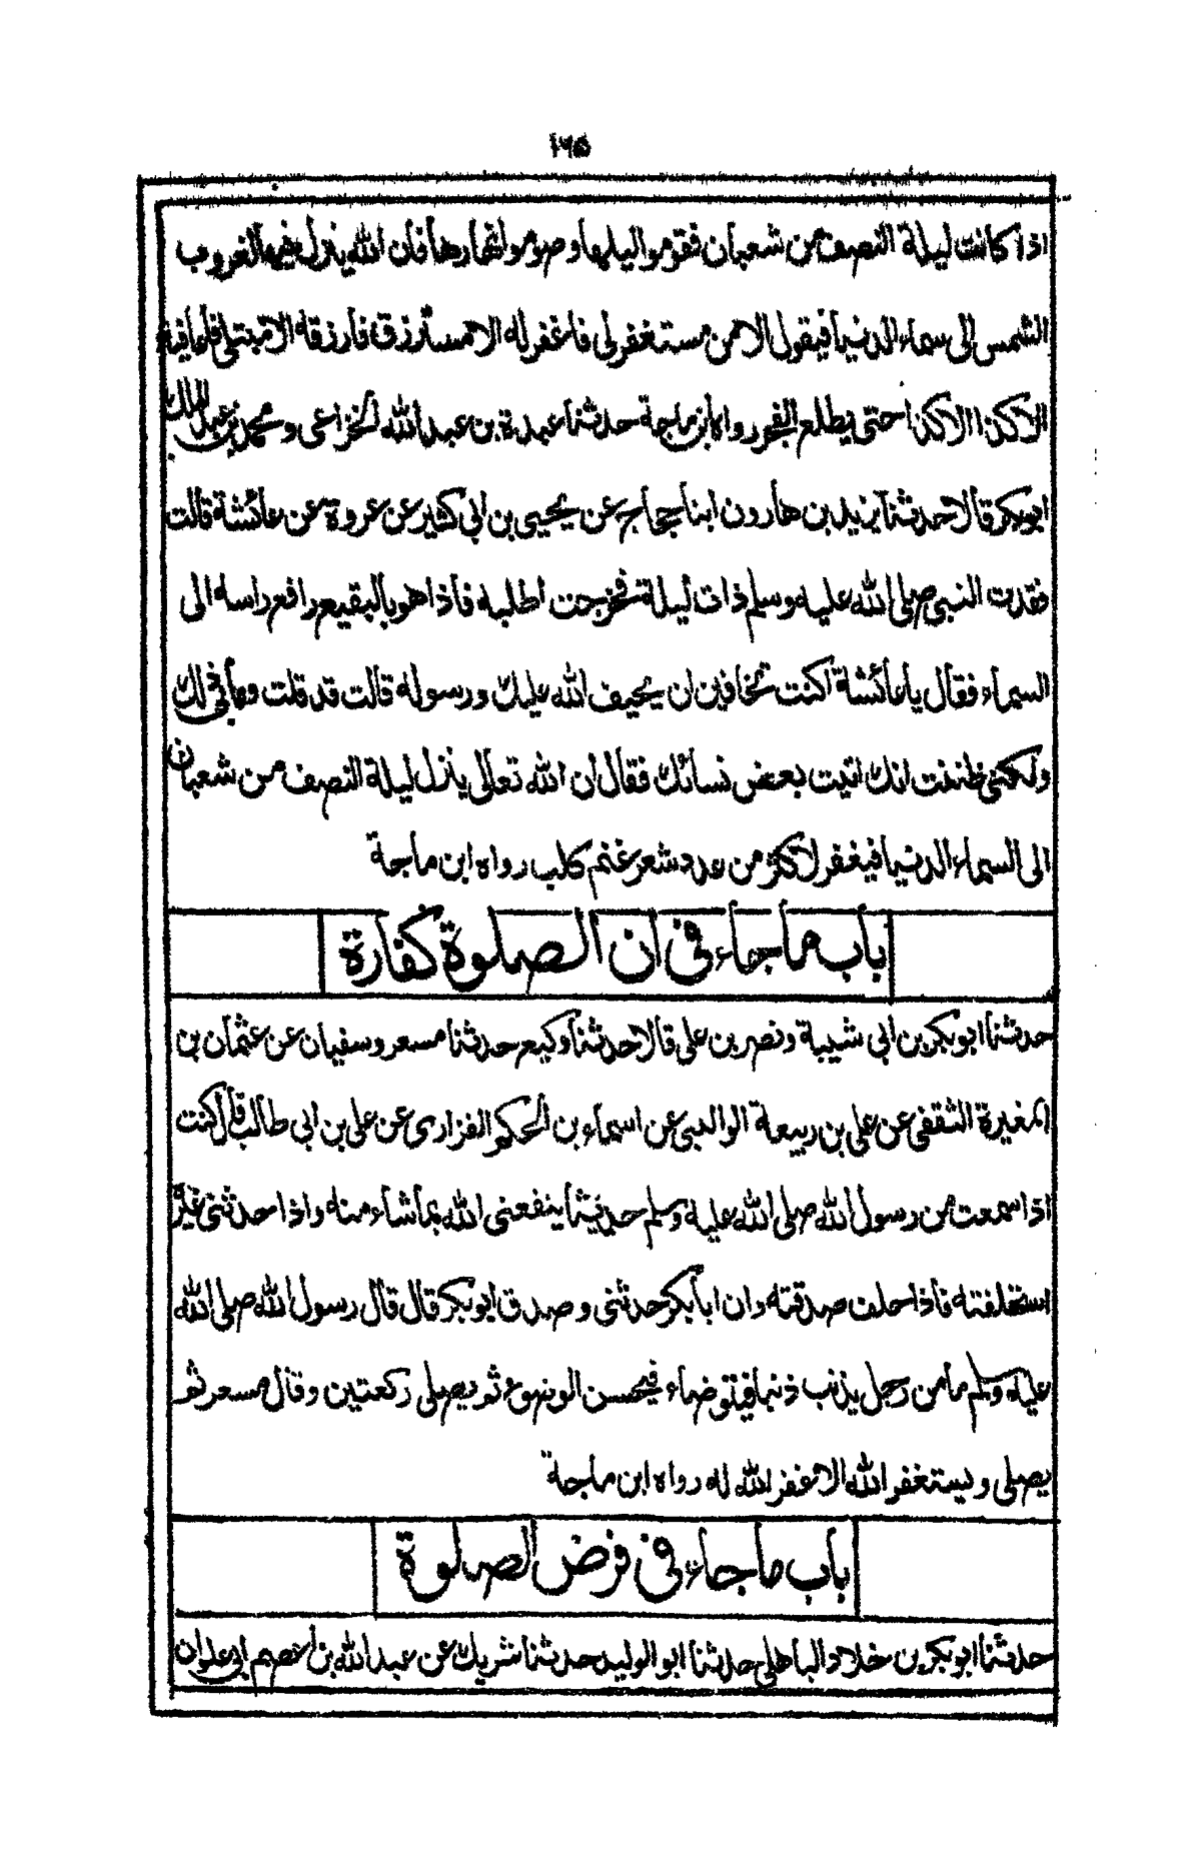 ١٦٥
اذا كانت ليلة النصف من شعبان فقوموا ليلها وصوموا نهارها فان الله ينزل فيها لغروب
الشمس الى سماء الدنيا فيقول الا من مستغفر لى فاغفر له الا مسترزق فارزقه الا مبتلى فاعافيه
الا كذا الا كذا حتى يطلع الفجر رواه ابن ماجة حدثنا عبدة بن عبد الله الخزاعى ومحمد بن عبد الملك
ابو بكر قالا حدثنا يزيد بن هارون ابنا حجاج عن يحيى بن ابى كثير عن عروة عن عائشة قالت
فقدت النبى صلى الله عليه وسلم ذات ليلة فخرجت اطلبه فاذا هو بالبقيع رافع راسه الى
السماء فقال يا عائشة اكنت تخافين ان يحيف الله عليك ورسوله قالت قد قلت وما بى ذلك
ولكنى ظننت انك اتيت بعض نسائك فقال ان الله تعالى ينزل ليلة النصف من شعبان
الى السماء الدنيا فيغفر لاكثر من عدد شعر غنم كلب رواه ابن ماجة
باب ما جاء فى ان الصلوة كفارة
حدثنا ابو بكر بن ابى شيبة ونصر بن على قالا حدثنا وكيع حدثنا مسعر وسفيان عن عثمان بن
المغيرة الثقفى عن على بن ربيعة الوالبى عن اسماء بن الحكم الفزارى عن على بن ابى طالب قال كنت
اذا سمعت من رسول الله صلى الله عليه وسلم حديثا ينفعنى الله بما شاء منه واذا حدثنى غيره
استحلفته فاذا حلف صدقته وان ابا بكر حدثنى وصدق ابو بكر قال قال رسول الله صلى الله
عليه وسلم ما من رجل يذنب ذنبا فيتوضاء فيحسن الوضوء ثم يصلى ركعتين وقال مسعر ثم
يصلى ويستغفر الله الا غفر الله له رواه ابن ماجة
باب ما جاء فى فرض الصلوة
حدثنا ابو بكر بن خلاد الباهلى حدثنا ابو الوليد حدثنا شريك عن عبد الله بن عصم ابى علوان